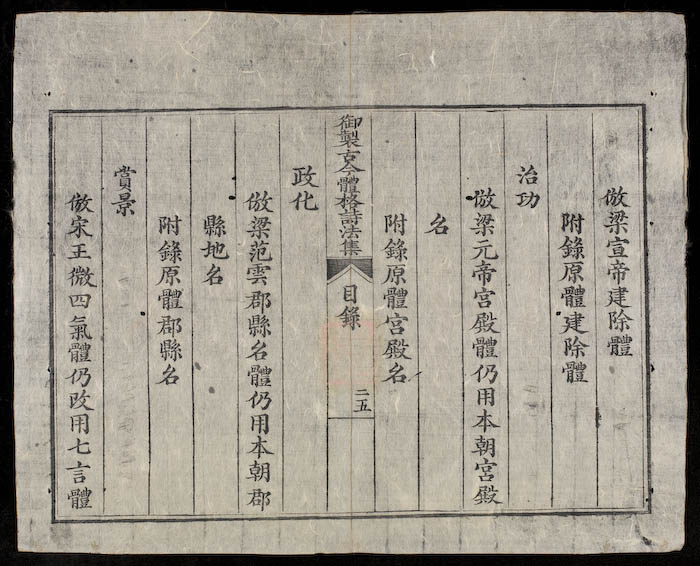 倣梁宣帝建除體
附錄原體建除體
治功
倣梁元帝宮殿體仍用本朝宮殿
名
附錄原體宮殿名
御製古今體格詩法集
目錄
二五
政化
倣梁范雲郡縣名體仍用本朝郡
縣地名
附錄原體郡縣名
賞景
倣宋王微四氣體仍改用七言體